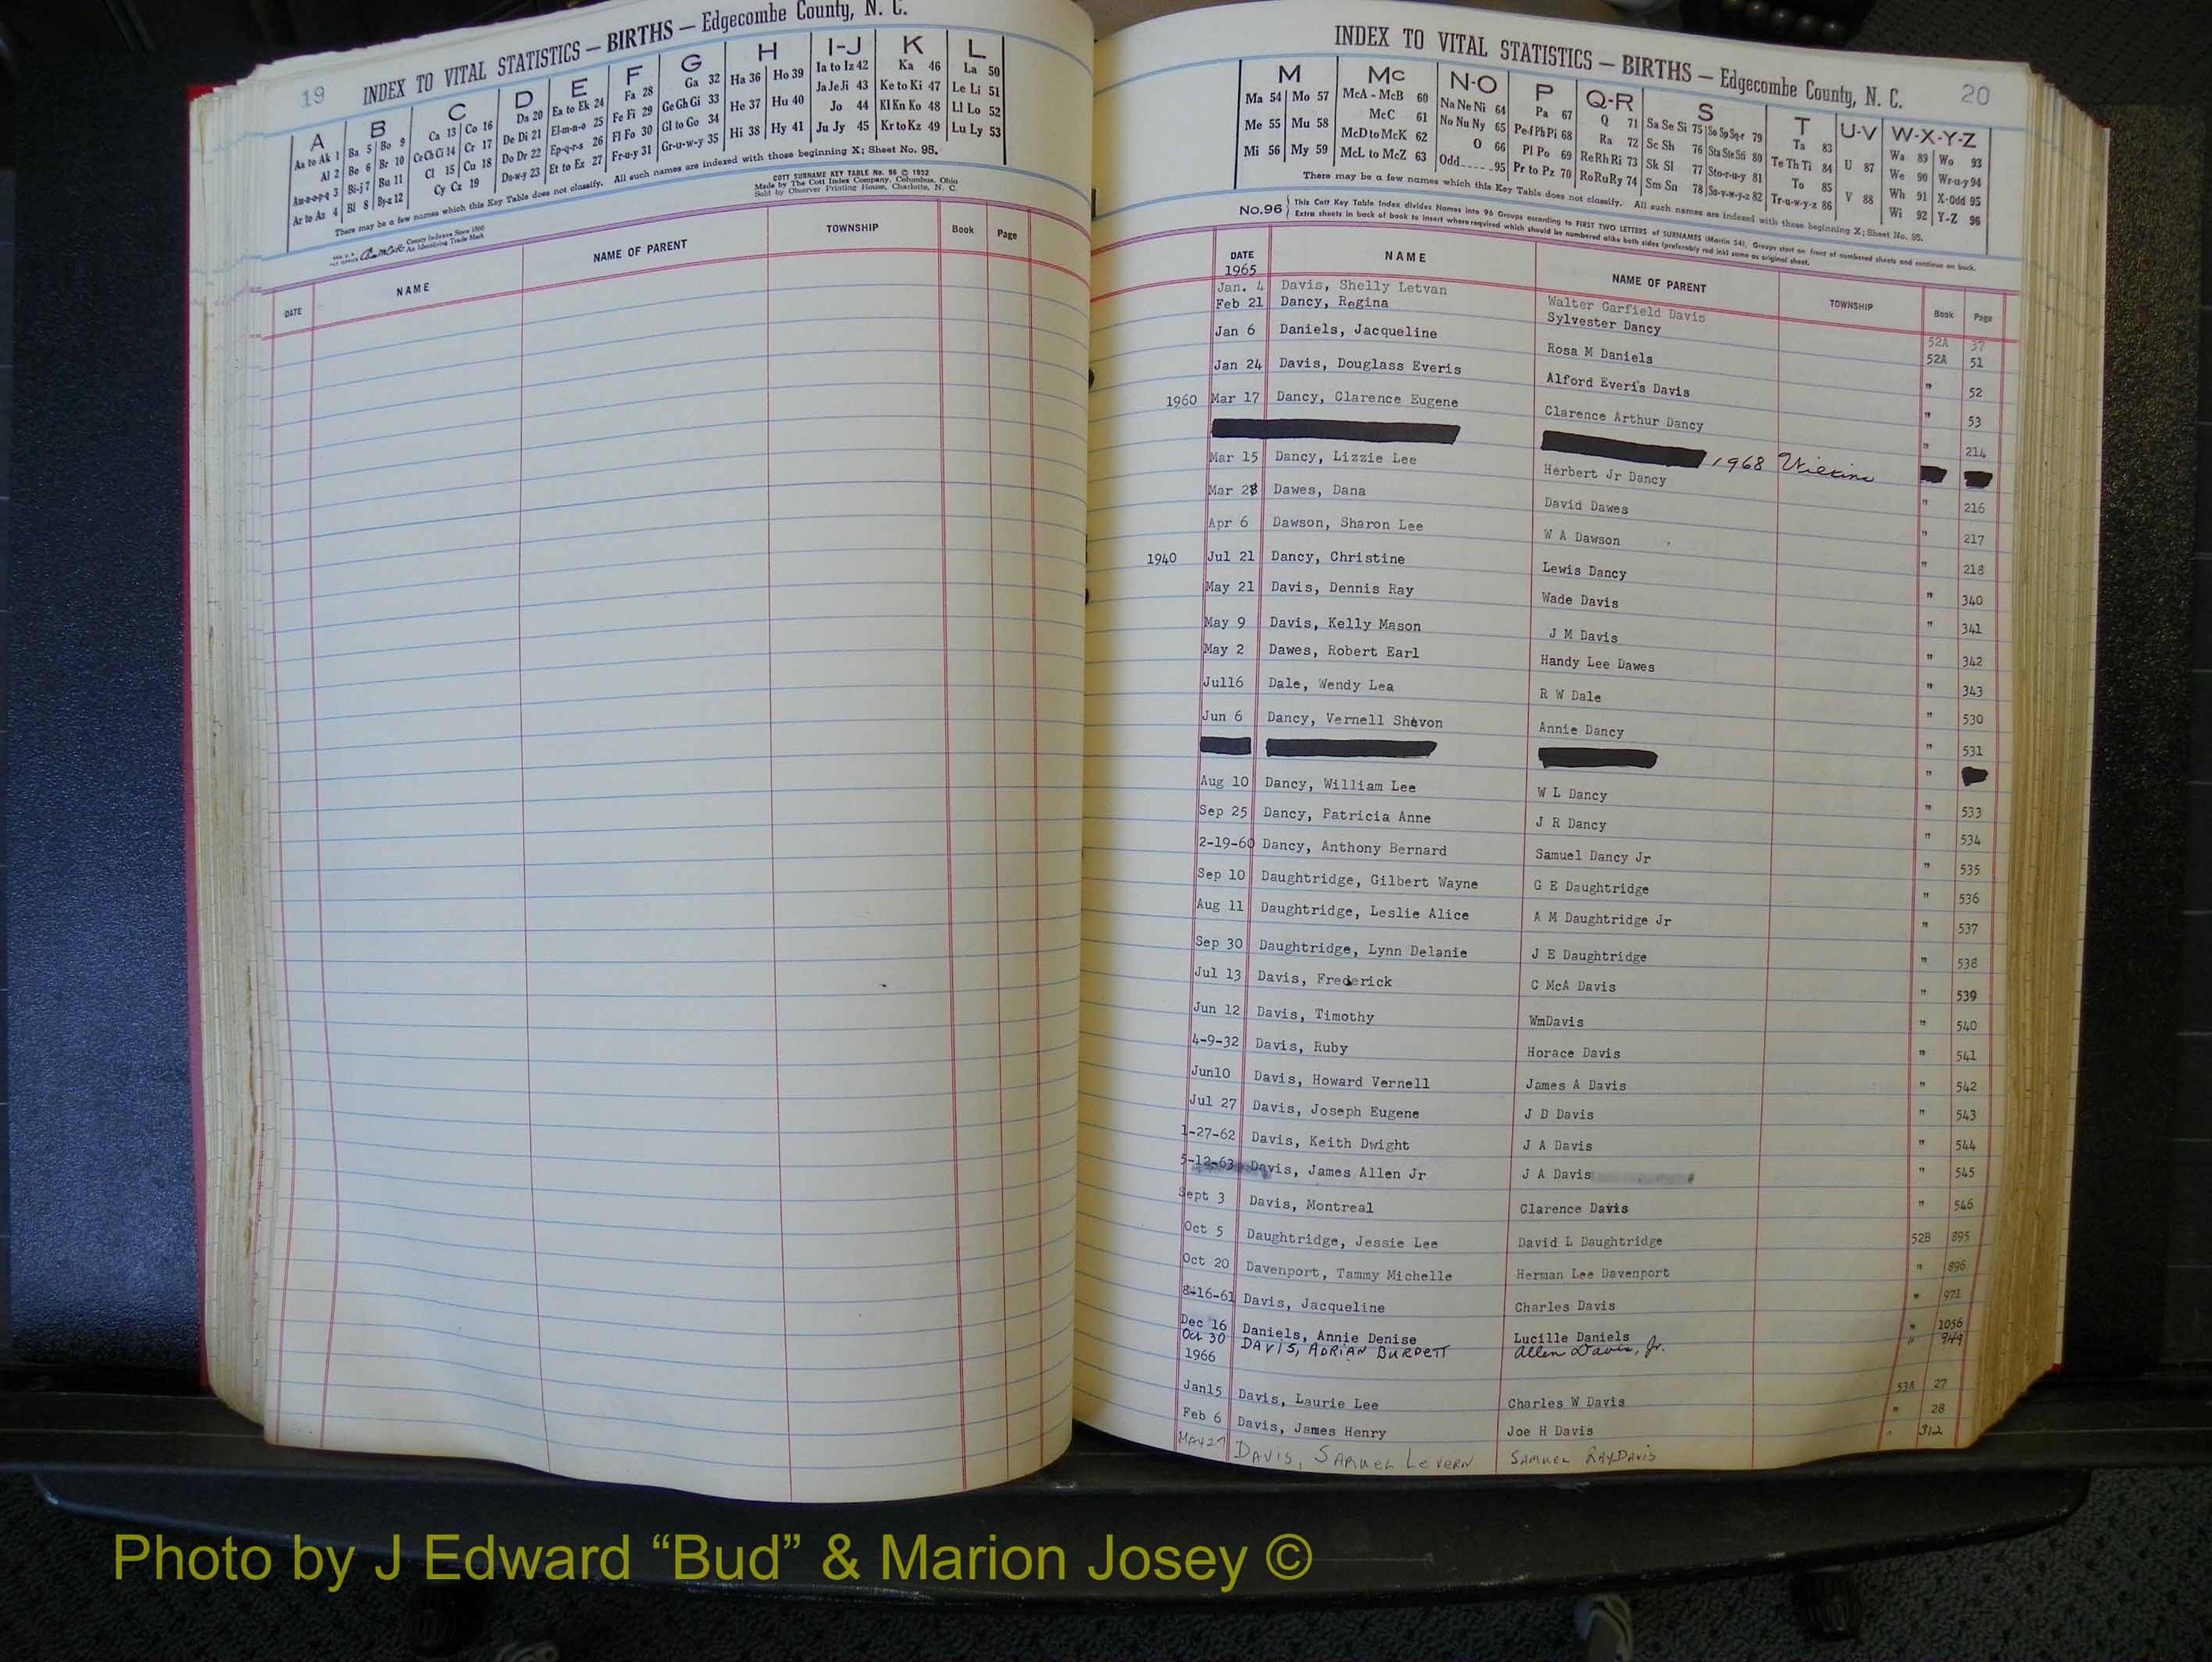 19 INDEX TO VITAL STATISTICS — BIRTHS — Edgecombe County, N. C.
A B C D E F G H I-J K L
Aa to Ak 1 Ba 5 Bo 9 Ca 13 Co 16 Da 20 Ea to Ek 24 Fa 28 Ga 32 Ha 36 Ho 39 Ia to Iz 42 Ka 46 La 50
Al 2 Be 6 Br 10 Ce Ch Ci 14 Cr 17 De Di 21 El-m-n-o 25 Fe Fi 29 Ge Gh Gi 33 He 37 Hu 40 Ja Je Ji 43 Ke to Ki 47 Le Li 51
Am-n-o-p-q 3 Bi-j 7 Bu 11 Cl 15 Cu 18 Do Dr 22 Ep-q-r-s 26 Fl Fo 30 Gl to Go 34 Hi 38 Hy 41 Jo 44 Kl Kn Ko 48 Ll Lo 52
Ar to Az 4 Bl 8 By-z 12 Cy Cz 19 Du-w-y 23 Et to Ez 27 Fr-u-y 31 Gr-u-w-y 35 Ju Jy 45 Kr to Kz 49 Lu Ly 53
There may be a few names which this Key Table does not classify. All such names are indexed with those beginning X; Sheet No. 95.
COTT SURNAME KEY TABLE No. 96 © 1932
Made by The Cott Index Company, Columbus, Ohio
Sold by Observer Printing House, Charlotte, N. C.
County Indexes Since 1888
As Identifying Trade Mark
DATE NAME NAME OF PARENT TOWNSHIP Book Page
INDEX TO VITAL STATISTICS — BIRTHS — Edgecombe County, N. C. 20
M Mc N-O P Q-R S T U-V W-X-Y-Z
Ma 54 Mo 57 McA - McB 60 Na Ne Ni 64 Pa 67 Q 71 Sa Se Si 75 So Sp Sq-r 79 Ta 83 U 87 Wa 89 Wo 93
Me 55 Mu 58 McC 61 No Nu Ny 65 Pe-f Ph Pi 68 Ra 72 Sc Sh 76 Sta Ste Sti 80 Te Th Ti 84 V 88 We 90 Wr-u-y 94
Mi 56 My 59 McD to McK 62 O 66 Pl Po 69 Re Rh Ri 73 Sk Sl 77 Sto-r-u-y 81 To 85 Wh 91 X-Odd 95
McL to McZ 63 Odd 95 Pr to Pz 70 Ro Ru Ry 74 Sm Sn 78 Su-v-w-y-z 82 Tr-u-w-y-z 86 Wi 92 Y-Z 96
There may be a few names which this Key Table does not classify. All such names are indexed with those beginning X; Sheet No. 95.
No. 96 This Cott Key Table Index divides Names into 96 Groups according to FIRST TWO LETTERS of SURNAMES (Martin 54). Groups start on front of numbered sheets and continue on back.
Extra sheets in back of book to insert where required which should be numbered alike both sides (preferably red ink) same as original sheet.
DATE NAME NAME OF PARENT TOWNSHIP Book Page
1965
Jan. 4 Davis, Shelly Letvan Walter Garfield Davis 52A 37
Feb 21 Dancy, Regina Sylvester Dancy 52A 51
Jan 6 Daniels, Jacqueline Rosa M Daniels " 52
Jan 24 Davis, Douglass Everis Alford Everis Davis " 53
1960 Mar 17 Dancy, Clarence Eugene Clarence Arthur Dancy " 214
1968 Wilkins
Mar 15 Dancy, Lizzie Lee Herbert Jr Dancy " 216
Mar 28 Dawes, Dana David Dawes " 217
Apr 6 Dawson, Sharon Lee W A Dawson " 218
1940 Jul 21 Dancy, Christine Lewis Dancy " 340
May 21 Davis, Dennis Ray Wade Davis " 341
May 9 Davis, Kelly Mason J M Davis " 342
May 2 Dawes, Robert Earl Handy Lee Dawes " 343
Jul16 Dale, Wendy Lea R W Dale " 530
Jun 6 Dancy, Vernell Shevon Annie Dancy " 531
"
Aug 10 Dancy, William Lee W L Dancy " 533
Sep 25 Dancy, Patricia Anne J R Dancy " 534
2-19-60 Dancy, Anthony Bernard Samuel Dancy Jr " 535
Sep 10 Daughtridge, Gilbert Wayne G E Daughtridge " 536
Aug 11 Daughtridge, Leslie Alice A M Daughtridge Jr " 537
Sep 30 Daughtridge, Lynn Delanie J E Daughtridge " 538
Jul 13 Davis, Frederick C McA Davis " 539
Jun 12 Davis, Timothy WmDavis " 540
4-9-32 Davis, Ruby Horace Davis " 541
Jun10 Davis, Howard Vernell James A Davis " 542
Jul 27 Davis, Joseph Eugene J D Davis " 543
1-27-62 Davis, Keith Dwight J A Davis " 544
5-12-63 Davis, James Allen Jr J A Davis " 545
Sept 3 Davis, Montreal Clarence Davis " 546
Oct 5 Daughtridge, Jessie Lee David L Daughtridge 52B 895
Oct 20 Davenport, Tammy Michelle Herman Lee Davenport " 896
8-16-61 Davis, Jacqueline Charles Davis " 971
Dec 16 Daniels, Annie Denise Lucille Daniels " 1056
Oct 30 DAVIS, ADRIAN BURDETT Allen Davis, Jr. " 949
1966
Jan15 Davis, Laurie Lee Charles W Davis 53A 27
Feb 6 Davis, James Henry Joe H Davis " 28
MAY 27 DAVIS, SAMUEL LEVERN SAMUEL RAY DAVIS " 312
Photo by J Edward “Bud” & Marion Josey ©